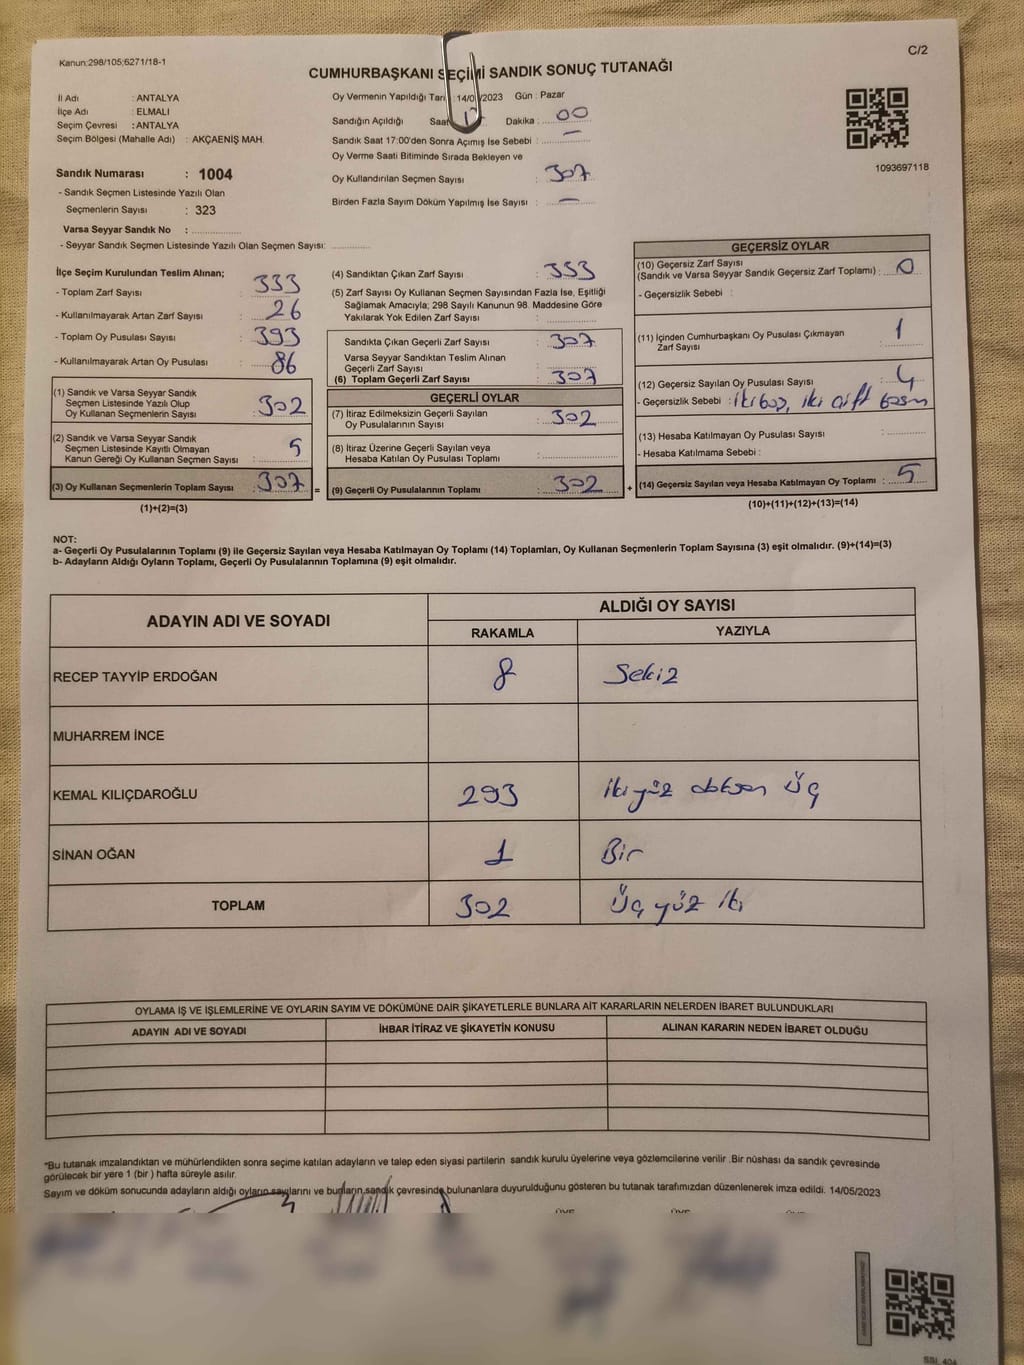 Kanun:298/105;6271/18-1
C/2
CUMHURBAŞKANI SEÇİMİ SANDIK SONUÇ TUTANAĞI
İl Adı : ANTALYA
İlçe Adı : ELMALI
Seçim Çevresi : ANTALYA
Seçim Bölgesi (Mahalle Adı) : AKÇAENİŞ MAH.
Sandık Numarası : 1004
- Sandık Seçmen Listesinde Yazılı Olan
Seçmenlerin Sayısı : 323
Varsa Seyyar Sandık No :
- Seyyar Sandık Seçmen Listesinde Yazılı Olan Seçmen Sayısı:
Oy Vermenin Yapıldığı Tari 14/0 /2023 Gün : Pazar
Sandığın Açıldığı Saat Dakika : 00
Sandık Saat 17:00'den Sonra Açımış İse Sebebi : —
Oy Verme Saati Bitiminde Sırada Bekleyen ve
Oy Kullandırılan Seçmen Sayısı : 307
Birden Fazla Sayım Döküm Yapılmış İse Sayısı : —
1093697118
İlçe Seçim Kurulundan Teslim Alınan;
- Toplam Zarf Sayısı : 333
- Kullanılmayarak Artan Zarf Sayısı : 26
- Toplam Oy Pusulası Sayısı : 393
- Kullanılmayarak Artan Oy Pusulası : 86
(1) Sandık ve Varsa Seyyar Sandık
Seçmen Listesinde Yazılı Olup
Oy Kullanan Seçmenlerin Sayısı : 302
(2) Sandık ve Varsa Seyyar Sandık
Seçmen Listesinde Kayıtlı Olmayan
Kanun Gereği Oy Kullanan Seçmen Sayısı : 5
(3) Oy Kullanan Seçmenlerin Toplam Sayısı : 307 =
(1)+(2)=(3)
(4) Sandıktan Çıkan Zarf Sayısı : 333
(5) Zarf Sayısı Oy Kullanan Seçmen Sayısından Fazla İse, Eşitliği
Sağlamak Amacıyla; 298 Sayılı Kanunun 98. Maddesine Göre
Yakılarak Yok Edilen Zarf Sayısı :
Sandıkta Çıkan Geçerli Zarf Sayısı : 307
Varsa Seyyar Sandıktan Teslim Alınan
Geçerli Zarf Sayısı :
(6) Toplam Geçerli Zarf Sayısı : 307
GEÇERLİ OYLAR
(7) İtiraz Edilmeksizin Geçerli Sayılan
Oy Pusulalarının Sayısı : 302
(8) İtiraz Üzerine Geçerli Sayılan veya
Hesaba Katılan Oy Pusulası Toplamı :
(9) Geçerli Oy Pusulalarının Toplamı : 302 +
GEÇERSİZ OYLAR
(10) Geçersiz Zarf Sayısı
(Sandık ve Varsa Seyyar Sandık Geçersiz Zarf Toplamı) : 0
- Geçersizlik Sebebi :
(11) İçinden Cumhurbaşkanı Oy Pusulası Çıkmayan
Zarf Sayısı : 1
(12) Geçersiz Sayılan Oy Pusulası Sayısı : 4
- Geçersizlik Sebebi : iki boş, iki çift basım
(13) Hesaba Katılmayan Oy Pusulası Sayısı :
- Hesaba Katılmama Sebebi :
(14) Geçersiz Sayılan veya Hesaba Katılmayan Oy Toplamı : 5
(10)+(11)+(12)+(13)=(14)
NOT:
a- Geçerli Oy Pusulalarının Toplamı (9) ile Geçersiz Sayılan veya Hesaba Katılmayan Oy Toplamı (14) Toplamları, Oy Kullanan Seçmenlerin Toplam Sayısına (3) eşit olmalıdır. (9)+(14)=(3)
b- Adayların Aldığı Oyların Toplamı, Geçerli Oy Pusulalarının Toplamına (9) eşit olmalıdır.
ADAYIN ADI VE SOYADI
ALDIĞI OY SAYISI
RAKAMLA YAZIYLA
RECEP TAYYİP ERDOĞAN 8 Sekiz
MUHARREM İNCE
KEMAL KILIÇDAROĞLU 293 iki yüz doksan üç
SİNAN OĞAN 1 Bir
TOPLAM 302 Üç yüz iki
OYLAMA İŞ VE İŞLEMLERİNE VE OYLARIN SAYIM VE DÖKÜMÜNE DAİR ŞİKAYETLERLE BUNLARA AİT KARARLARIN NELERDEN İBARET BULUNDUKLARI
ADAYIN ADI VE SOYADI İHBAR İTİRAZ VE ŞİKAYETİN KONUSU ALINAN KARARIN NEDEN İBARET OLDUĞU
*Bu tutanak imzalandıktan ve mühürlendikten sonra seçime katılan adayların ve talep eden siyasi partilerin sandık kurulu üyelerine veya gözlemcilerine verilir .Bir nüshası da sandık çevresinde
görülecek bir yere 1 (bir ) hafta süreyle asılır.
Sayım ve döküm sonucunda adayların aldığı oyların sayılarını ve bunların sandık çevresinde bulunanlara duyurulduğunu gösteren bu tutanak tarafımızdan düzenlenerek imza edildi. 14/05/2023